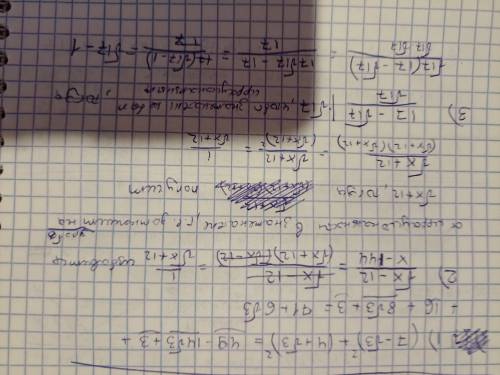 1) (7-√3)² + (4+√3)² = 49-14√3+3 +
+ 16 + 8√3 + 3 = 71 + 6√3
2) (√x - 12)/(x-144) = (√x - 12)/((√x+12)(√x-12)) = 1/(√x+12) избавить
я иррациональности в знаменателе, т.е. домножить дробь на
√x+12, тогда получим
(√x+12)/((√x+12)(√x+12)) = (√x+12)/(√x+12)² = 1/(√x+12)
3) (17-√17)/√17 | √17, чтобы знаменатель не был иррациональным, тогда
√17(17-√17)/(√17·√17) = (17√17-17)/17 = 17(√17-1)/17 = √17-1